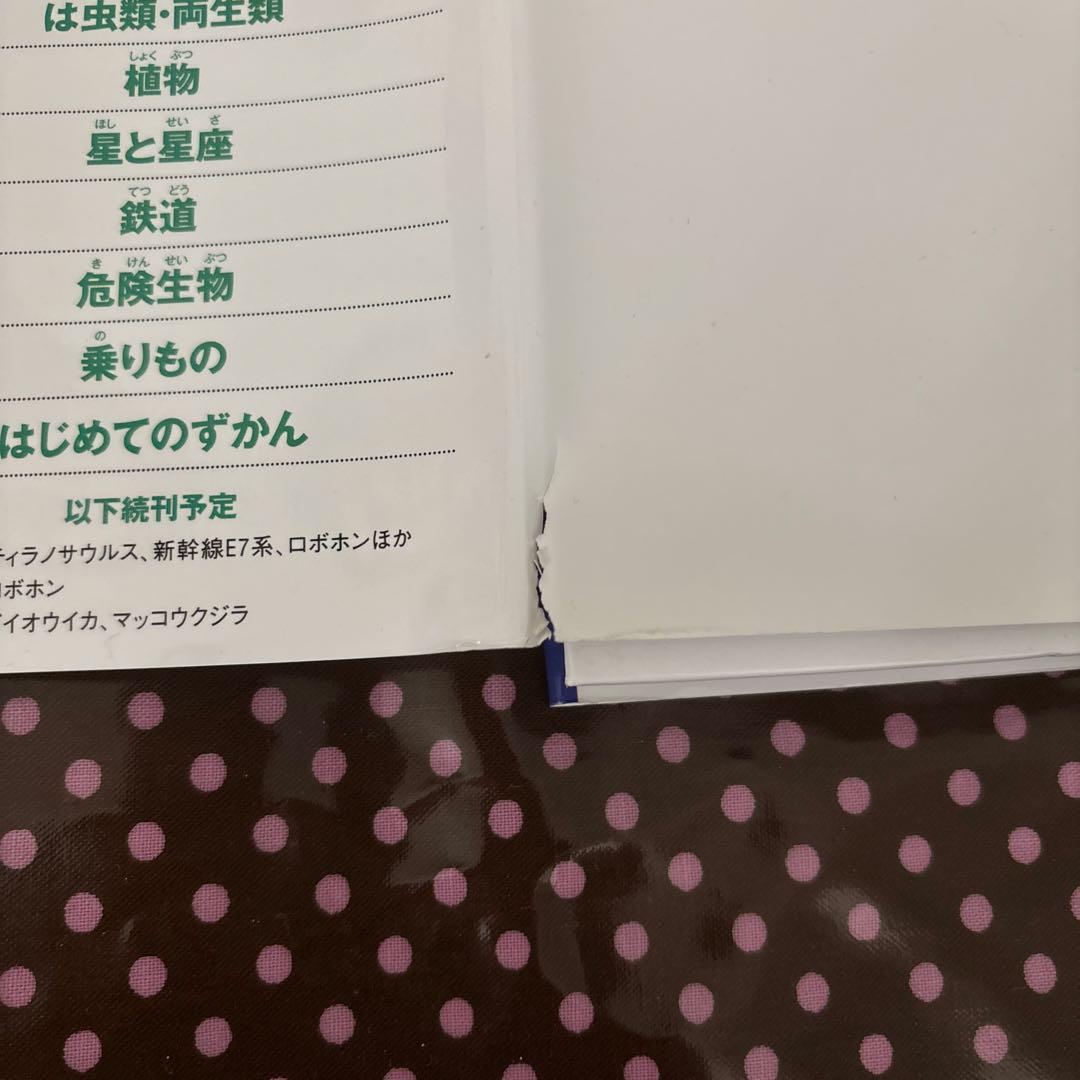 は虫類・両生類
しょく ぶつ
植物
ほし せい ざ
星と星座
てつ どう
鉄道
き けん せい ぶつ
危険生物
の
乗りもの
はじめてのずかん
以下続刊予定
ティラノサウルス、新幹線E7系、ロボホンほか
ロボホン
ダイオウイカ、マッコウクジラ